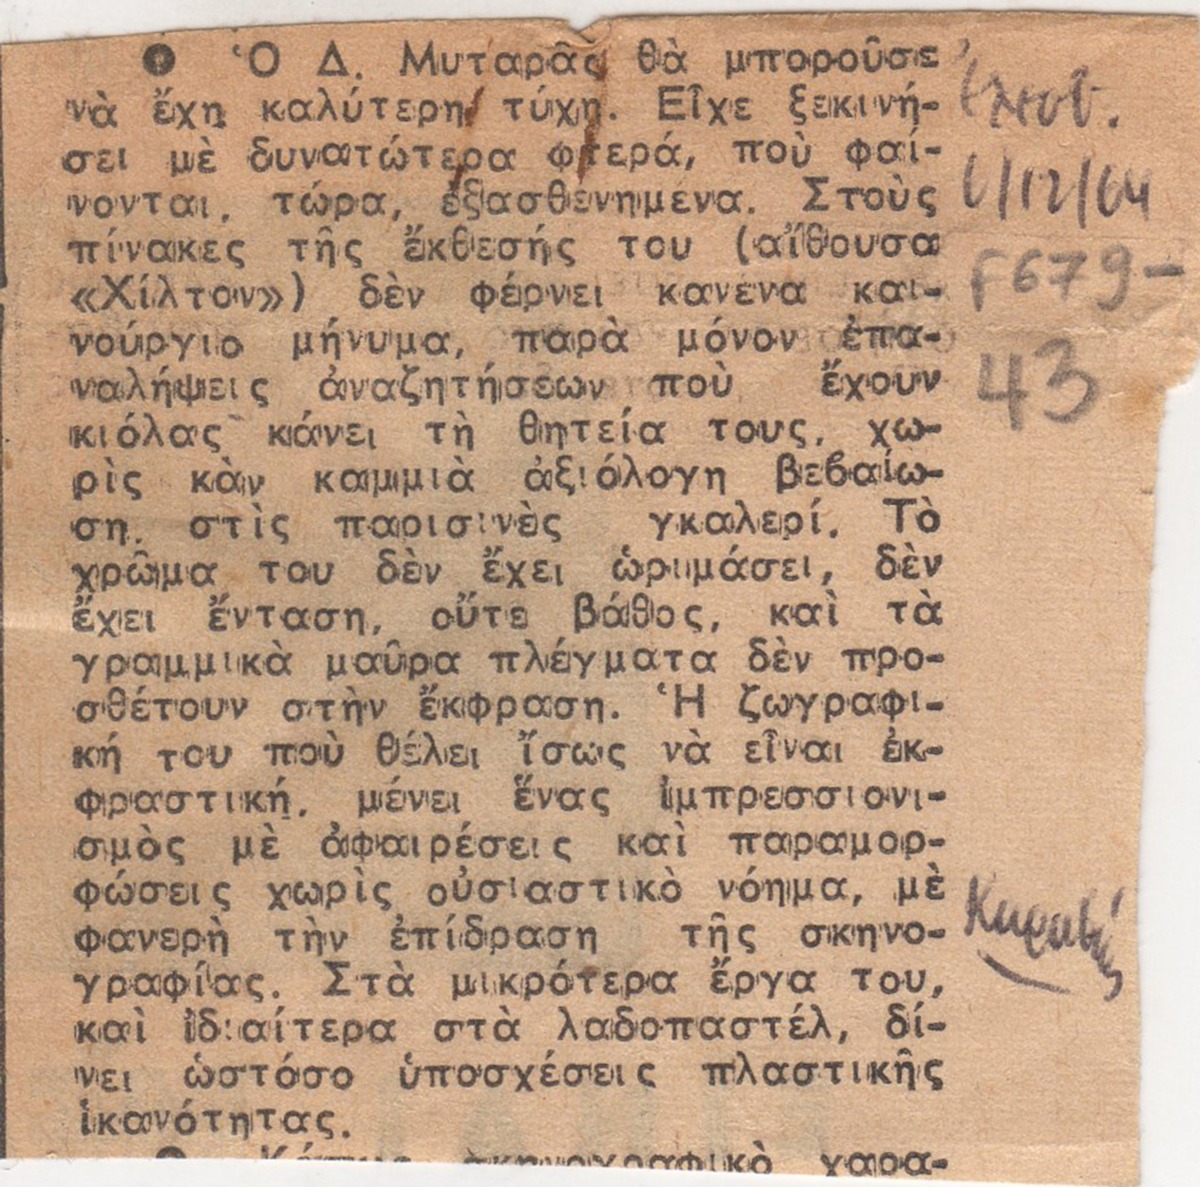 ● Ὁ Δ. Μυταρᾶς θὰ μποροῦσε
νὰ ἔχη καλύτερη τύχη. Εἶχε ξεκινή-
σει μὲ δυνατώτερα φτερά, ποὺ φαί-
νονται, τώρα, ἐξασθενημένα. Στοὺς
πίνακες τῆς ἔκθεσής του (αἴθουσα
«Χίλτον») δὲν φέρνει κανένα και-
νούργιο μήνυμα, παρὰ μόνον ἐπα-
ναλήψεις ἀναζητήσεων ποὺ ἔχουν
κιόλας κάνει τὴ θητεία τους, χω-
ρὶς κἂν καμμιὰ ἀξιόλογη βεβαίω-
ση, στὶς παρισινὲς γκαλερί. Τὸ
χρῶμα του δὲν ἔχει ὡριμάσει, δὲν
ἔχει ἔνταση, οὔτε βάθος, καὶ τὰ
γραμμικὰ μαῦρα πλέγματα δὲν προ-
σθέτουν στὴν ἔκφραση. Ἡ ζωγραφι-
κή του ποὺ θέλει ἴσως νὰ εἶναι ἐκ-
φραστική, μένει ἕνας ἰμπρεσσιονι-
σμὸς μὲ ἀφαιρέσεις καὶ παραμορ-
φώσεις χωρὶς οὐσιαστικὸ νόημα, μὲ
φανερὴ τὴν ἐπίδραση τῆς σκηνο-
γραφίας. Στὰ μικρότερα ἔργα του,
καὶ ἰδιαίτερα στὰ λαδοπαστέλ, δί-
νει ὡστόσο ὑποσχέσεις πλαστικῆς
ἱκανότητας.
σκηνογραφικὸ χαρα-
6/12/64
F679-
43